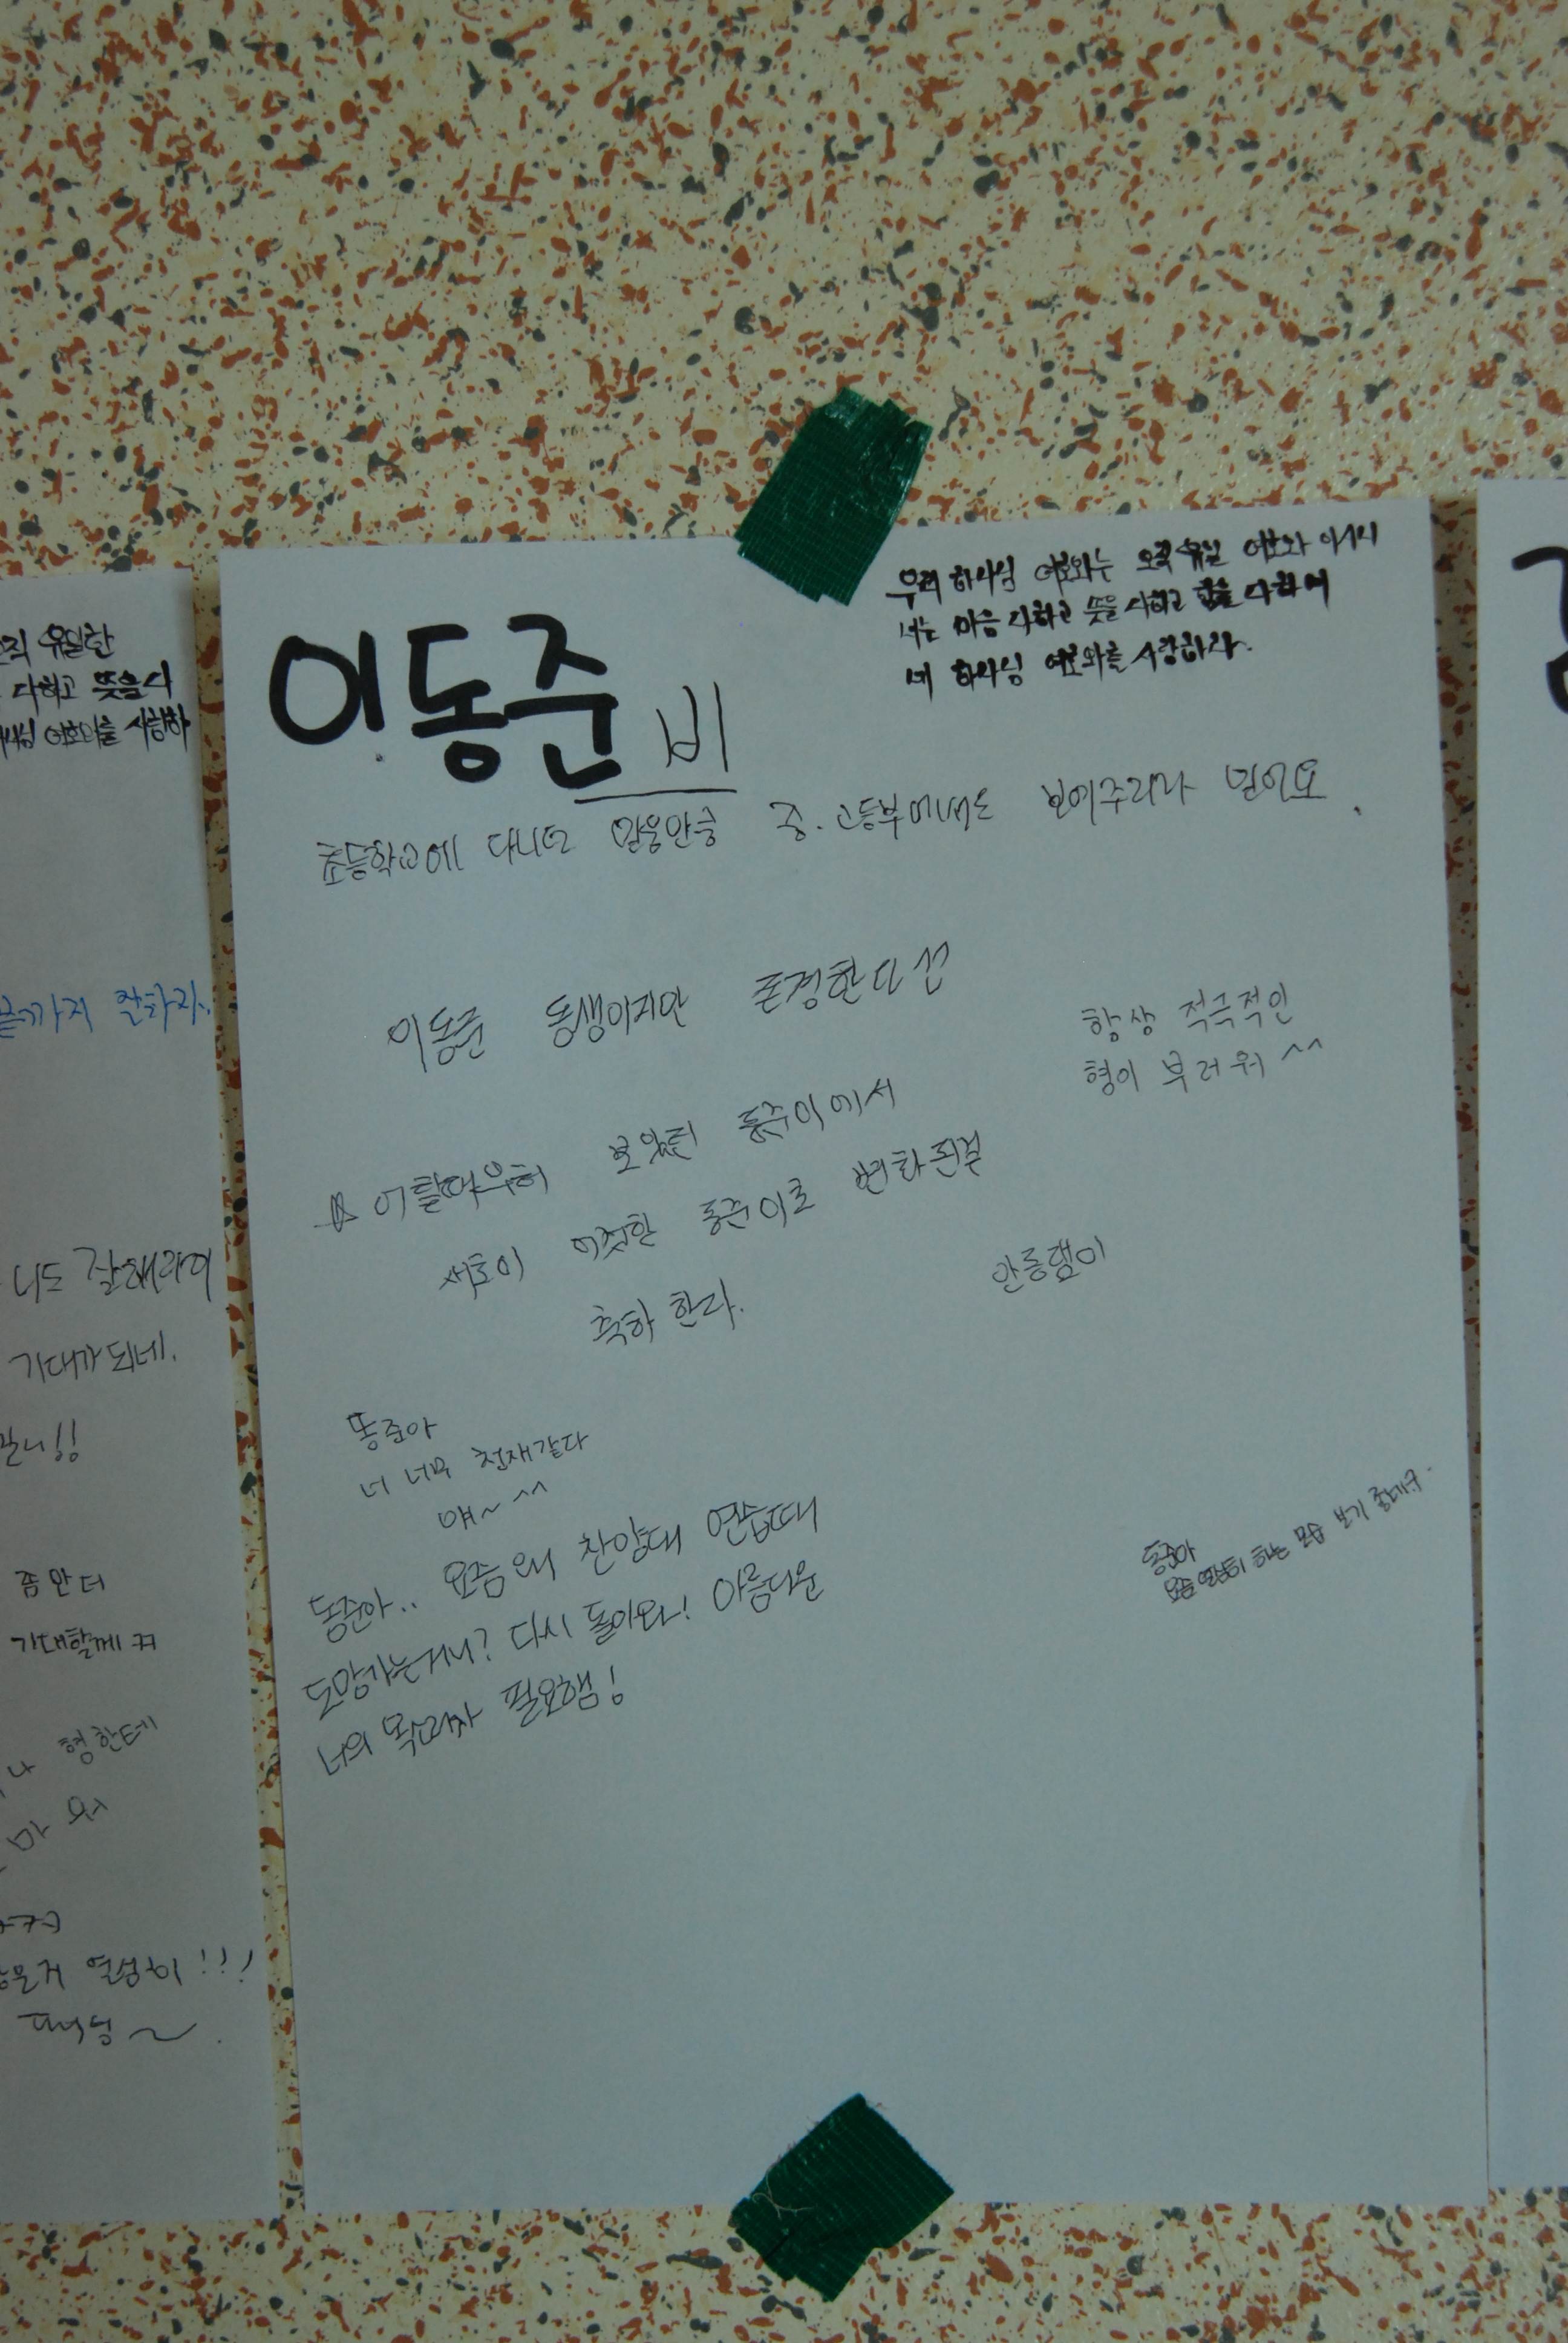 이동준 비
우리 하나님 여호와는 오직 유일 여호와 이시니
너는 마음 다하고 뜻을 다하고 힘을 다하여
네 하나님 여호와를 사랑하라.
초등학교에 다니던 믿음만큼 중.고등부에서도 보여주리라 믿어요.
이동준 동생이지만 존경한다
항상 적극적인
형이 부러워 ^^
보았던 동준이에서
동준이로 변화된걸
축하 한다.
똥준아
너 너무 천재같다
얘~ ^^
동준아.. 요즘 왜 찬양대 연습때
도망가는거니? 다시 돌아와! 아름다운
너의 목소리가 필요햄!
동준아
요즘 열심히 하는 모습 보기 좋데구.
유일한
다하고 뜻을 다
여호와를 사랑하
끝까지 잘하자.
너도 잘해라이
기대가 되네.
좀 만 더
기대할게 ㅋㅋ
형한테
열심히 !!!